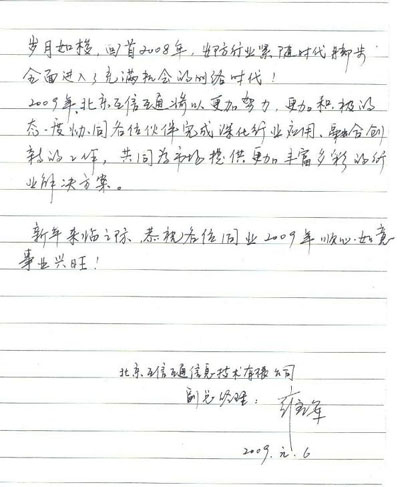 岁月如梭,回首2008年,安防行业紧随时代脚步
全面进入了充满机会的网络时代!
2009年,北京互信互通将以更加努力,更加积极的
态度协同各位伙伴完成深化行业应用、融合创
新的工作,共同为市场提供更加丰富多彩的行
业解决方案。
新年来临之际,恭祝各位同业2009年顺心如意
事业兴旺!
北京互信互通信息技术有限公司
副总经理:
2009.元.6